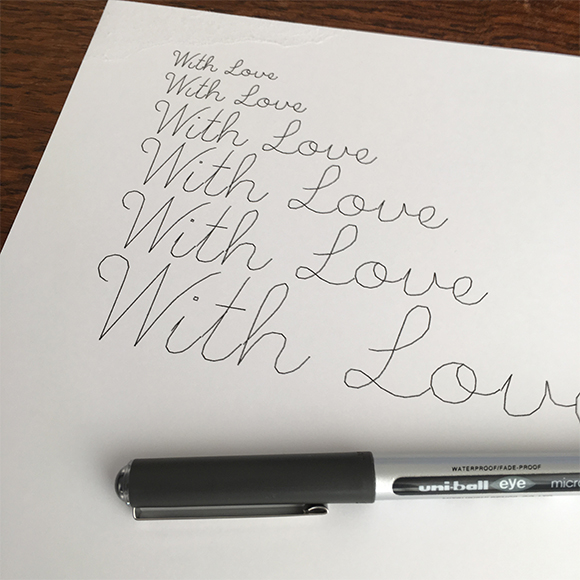 With Love
With Love
With Love
With Love
With Love
With Love
WATERPROOF/FADE-PROOF
uni-ball eye micro